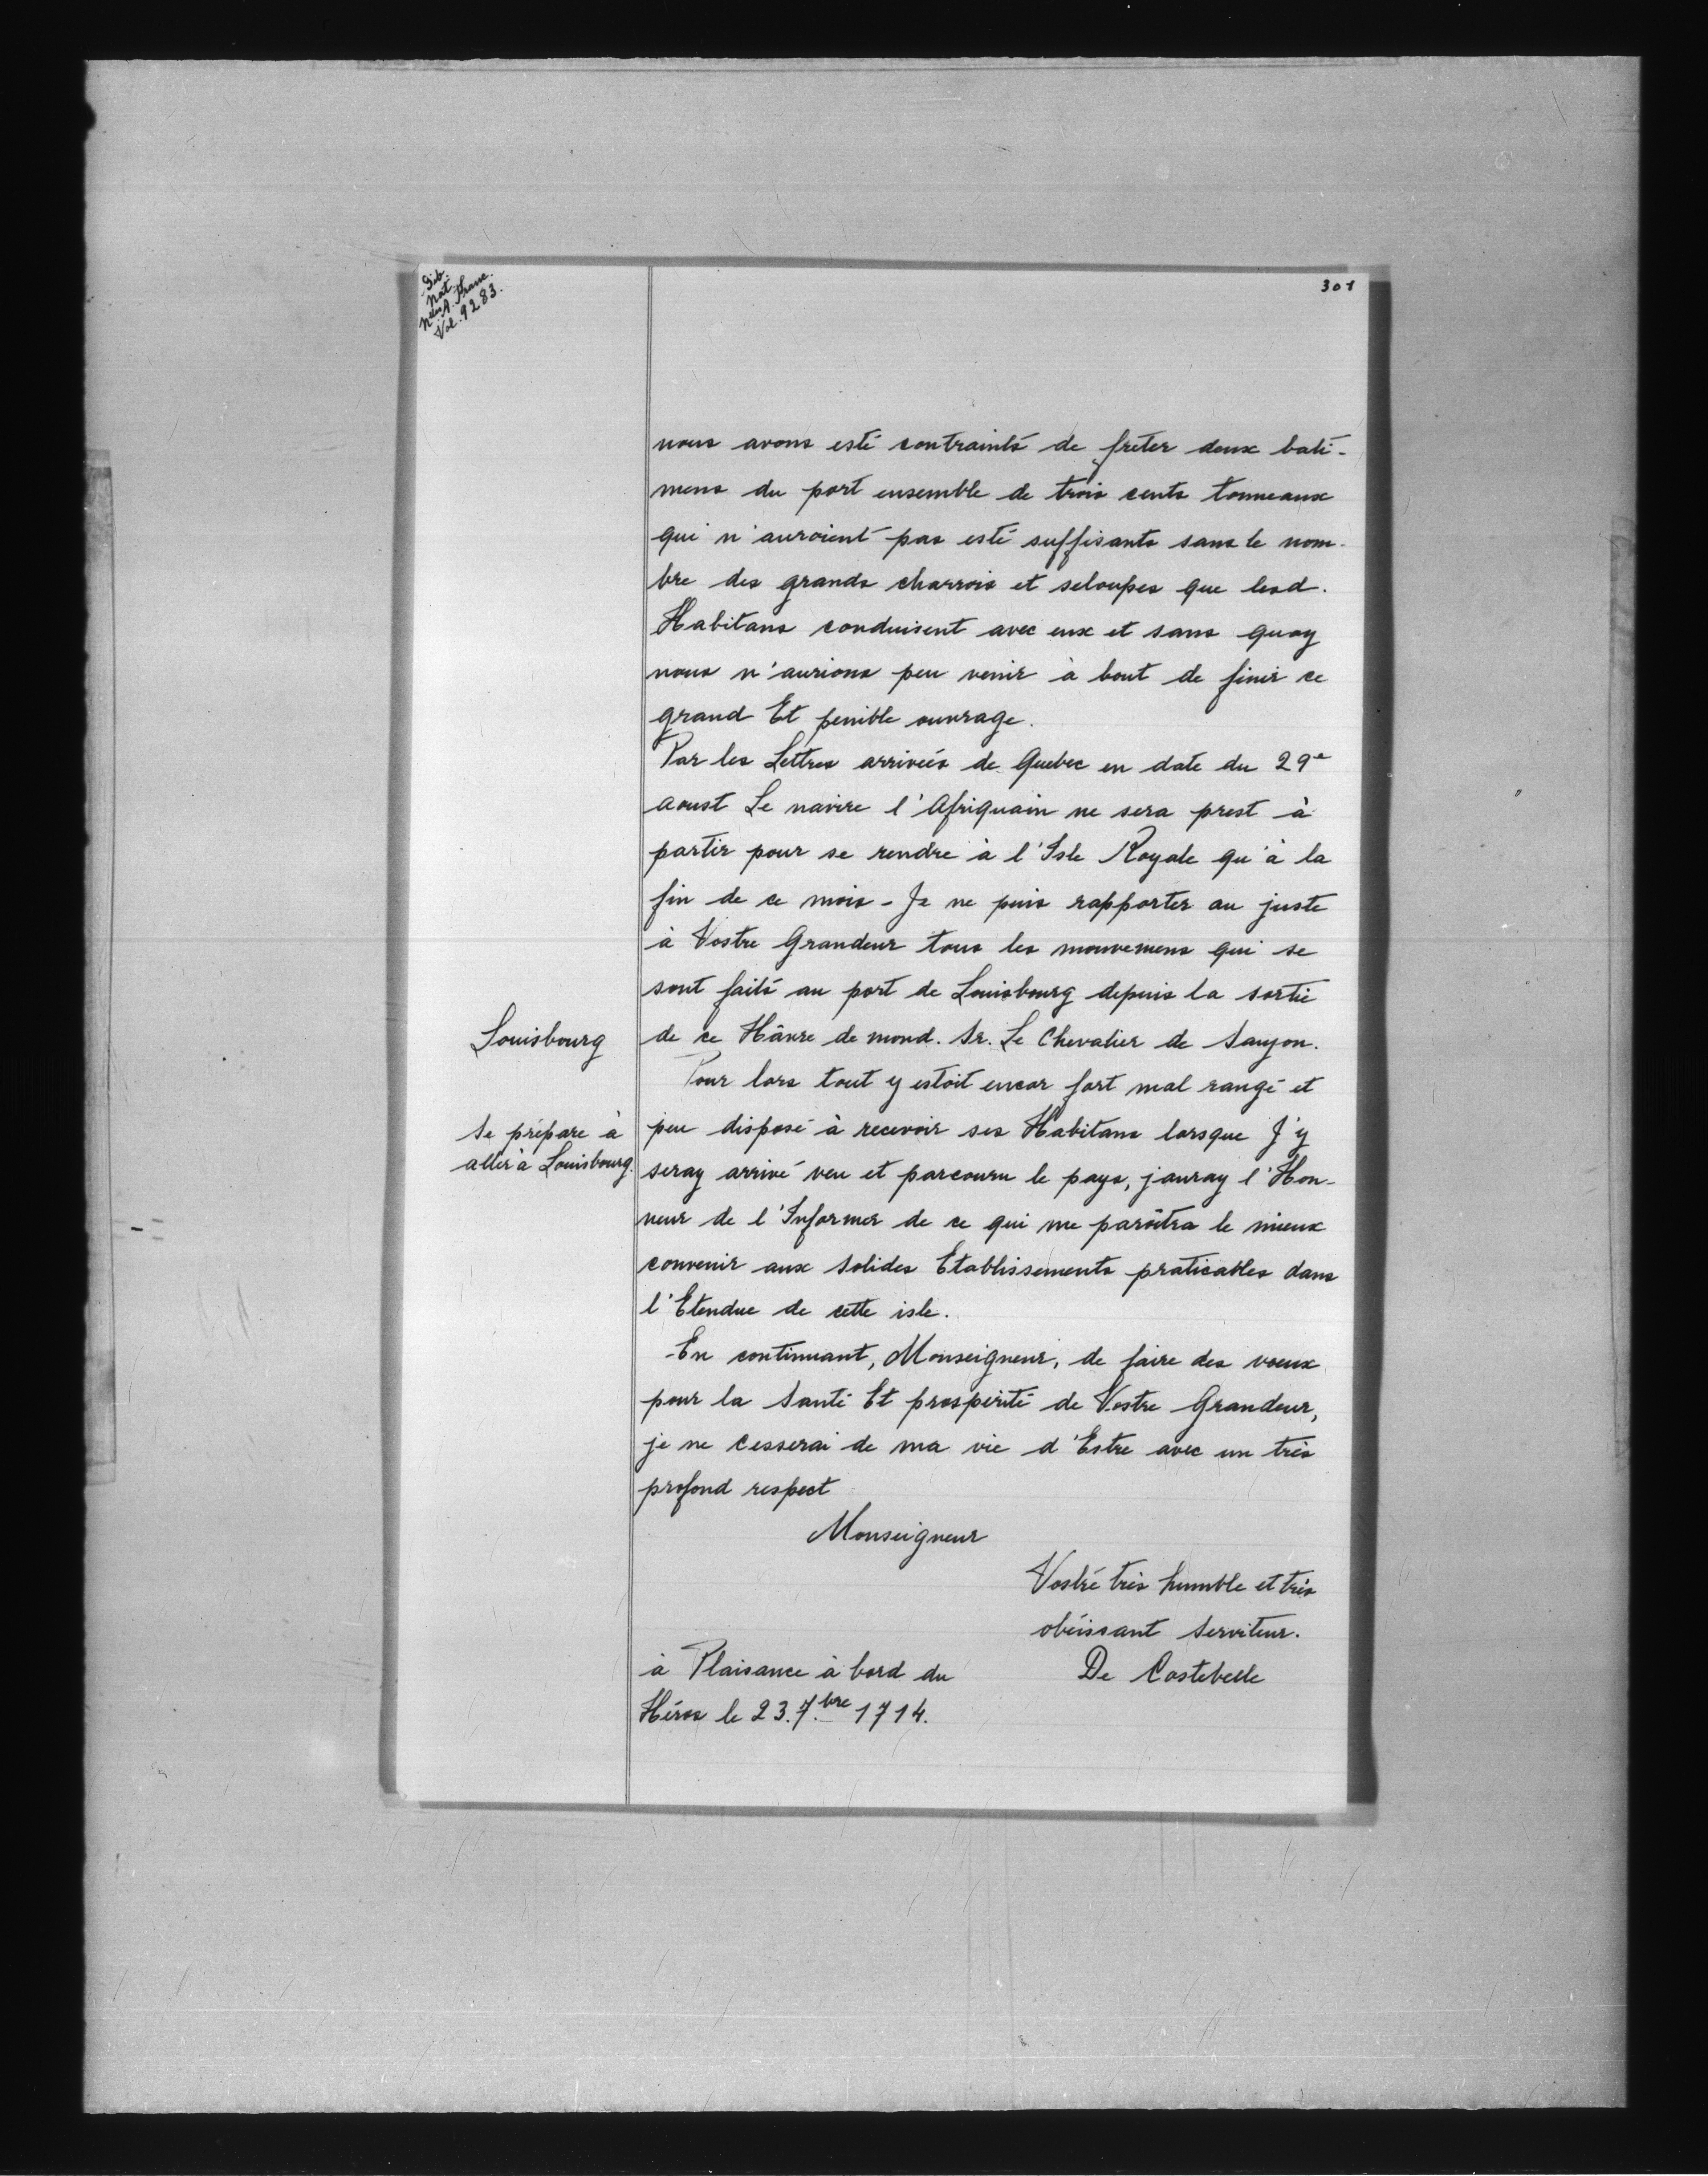 Bib.
Nat.
Nlles A. Franc.
Vol. 9283.
301
nous avons esté contraints de freter deux bati-
mens du port ensemble de trois cents tonneaux
qui n'auroient pas esté suffisants sans le nom-
bre des grands charrois et seloupes que lesd.
Habitans conduisent avec eux et sans quoy
nous n'aurions peu venir à bout de finir ce
grand Et penible ouvrage.
Par les Lettres arrivées de Quebec en date du 29e
aoust Le navire l'Afriquain ne sera prest à
partir pour se rendre à l'Isle Royale qu'à la
fin de ce mois - Je ne puis rapporter au juste
à Vostre Grandeur tous les mouvemens qui se
sont faits au port de Louisbourg depuis la sortie
Louisbourg
de ce Hâvre de mond. Sr. Le Chevalier de Saujon.
Pour lors tout y estoit encor fort mal rangé et
Se prépare à
aller à Louisbourg.
peu disposé à recevoir ses Habitans lorsque J'y
seray arrivé veu et parcouru le pays, jauray l'Hon-
neur de l'Informer de ce qui me paroîtra le mieux
convenir aux solides Etablissements praticables dans
l'Etendue de cette isle.
En continuant, Monseigneur, de faire des voeux
pour la Santé Et prospérité de Vostre Grandeur,
je ne cesserai de ma vie d'Estre avec un très
profond respect
Monseigneur
Vostré très humble et très
obéissant Serviteur.
De Costebelle
à Plaisance à bord du
Héros le 23. 7.bre 1714.